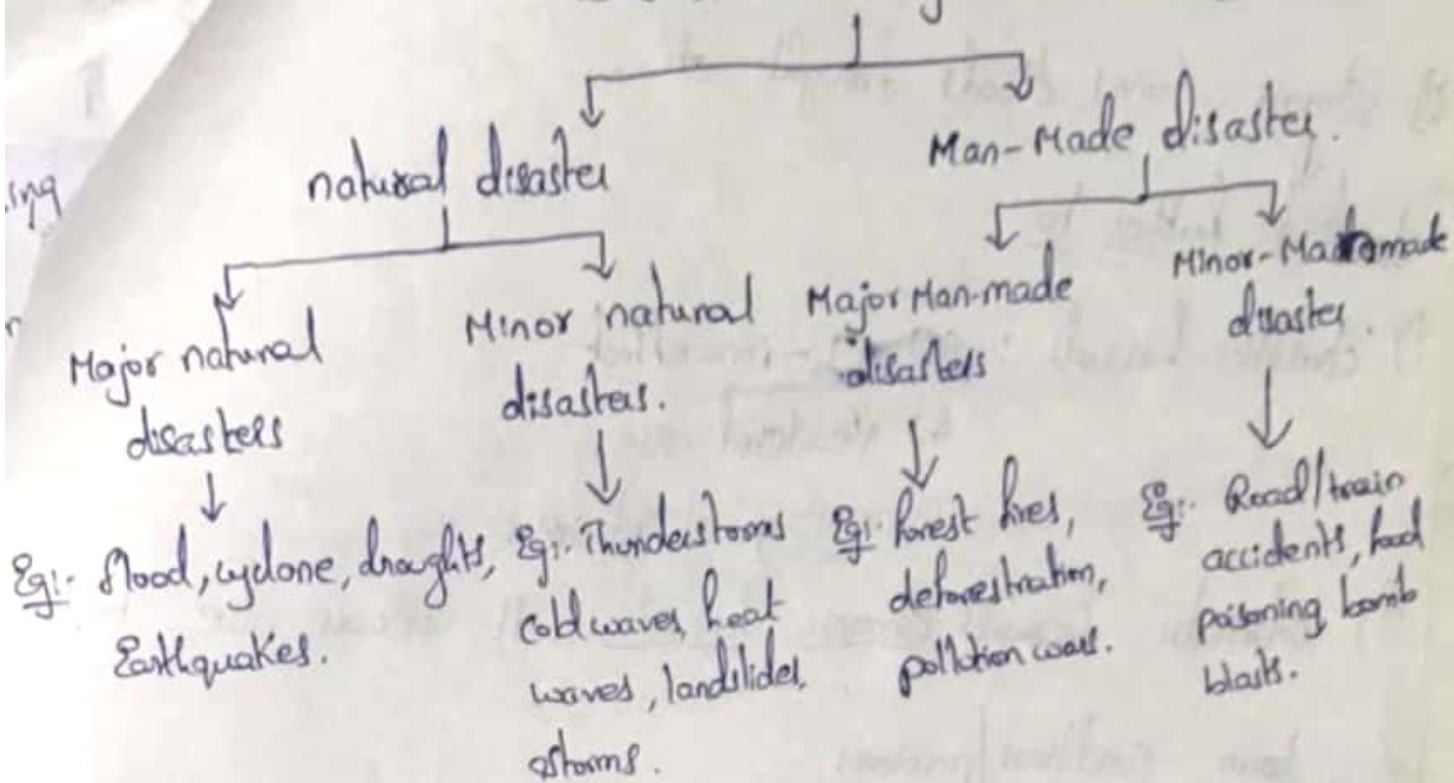 ing
natural disaster
Man-Made disaster.
Major natural
disasters
Minor natural
disasters.
Major Man-made
disasters
Minor-Man made
disaster.
Eg:- flood, cyclone, draughts,
Earthquakes.
Eg:- Thunderstorms
cold waves, heat
waves, landslides,
storms.
Eg:- forest fires,
deforestration,
pollution wars.
Eg:- Road/train
accidents, food
poisoning bomb
blasts.